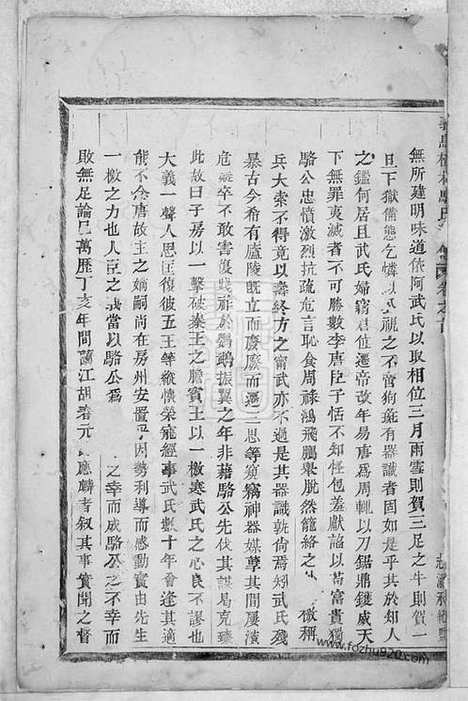 無所建明味道依阿武氏以取相位三月雨雪則賀三足之牛則賀一
旦下獄備憊乞憐以視之不啻狗彘有器識者固如是乎其於知人
之鑑何居且武氏婦竊君位遷帝改年易唐爲周輒以刀鋸鼎鑊威天
下無罪夷滅者不可勝數李唐臣子恬不知怪包羞獻諂以苟富貴獨
駱公忠憤激烈抗疏危言恥食周祿鴻飛鵬舉脫然籠絡之 檄稱
兵大索不得竟以壽終方之甯武亦不過是其器識孰尚焉矧武氏殘
暴古今希有廬陵既立而廢廢而遷三思等窺竊神器媒孽其間屢濱
危疑卒不敢害復踐祚於鸚鵡振翼之年非藉駱公先伐其謀曷克臻
此故曰子房以一擊破秦王之膽賓王以一檄寒武氏之心良不謬也
大義一聲人思匡復彼五王等縱懷榮寵經事武氏數十年會逢其適
能不念唐故主之嫡嗣尚在房州安置 因勢利導而感動實由先生
一檄之力也人臣之 當以駱公爲 之幸而成駱公之不幸而
敗無足論已萬歷丁亥年間蘭江胡 元 應麟者叙其事實聞之督
www.fozhu920.com